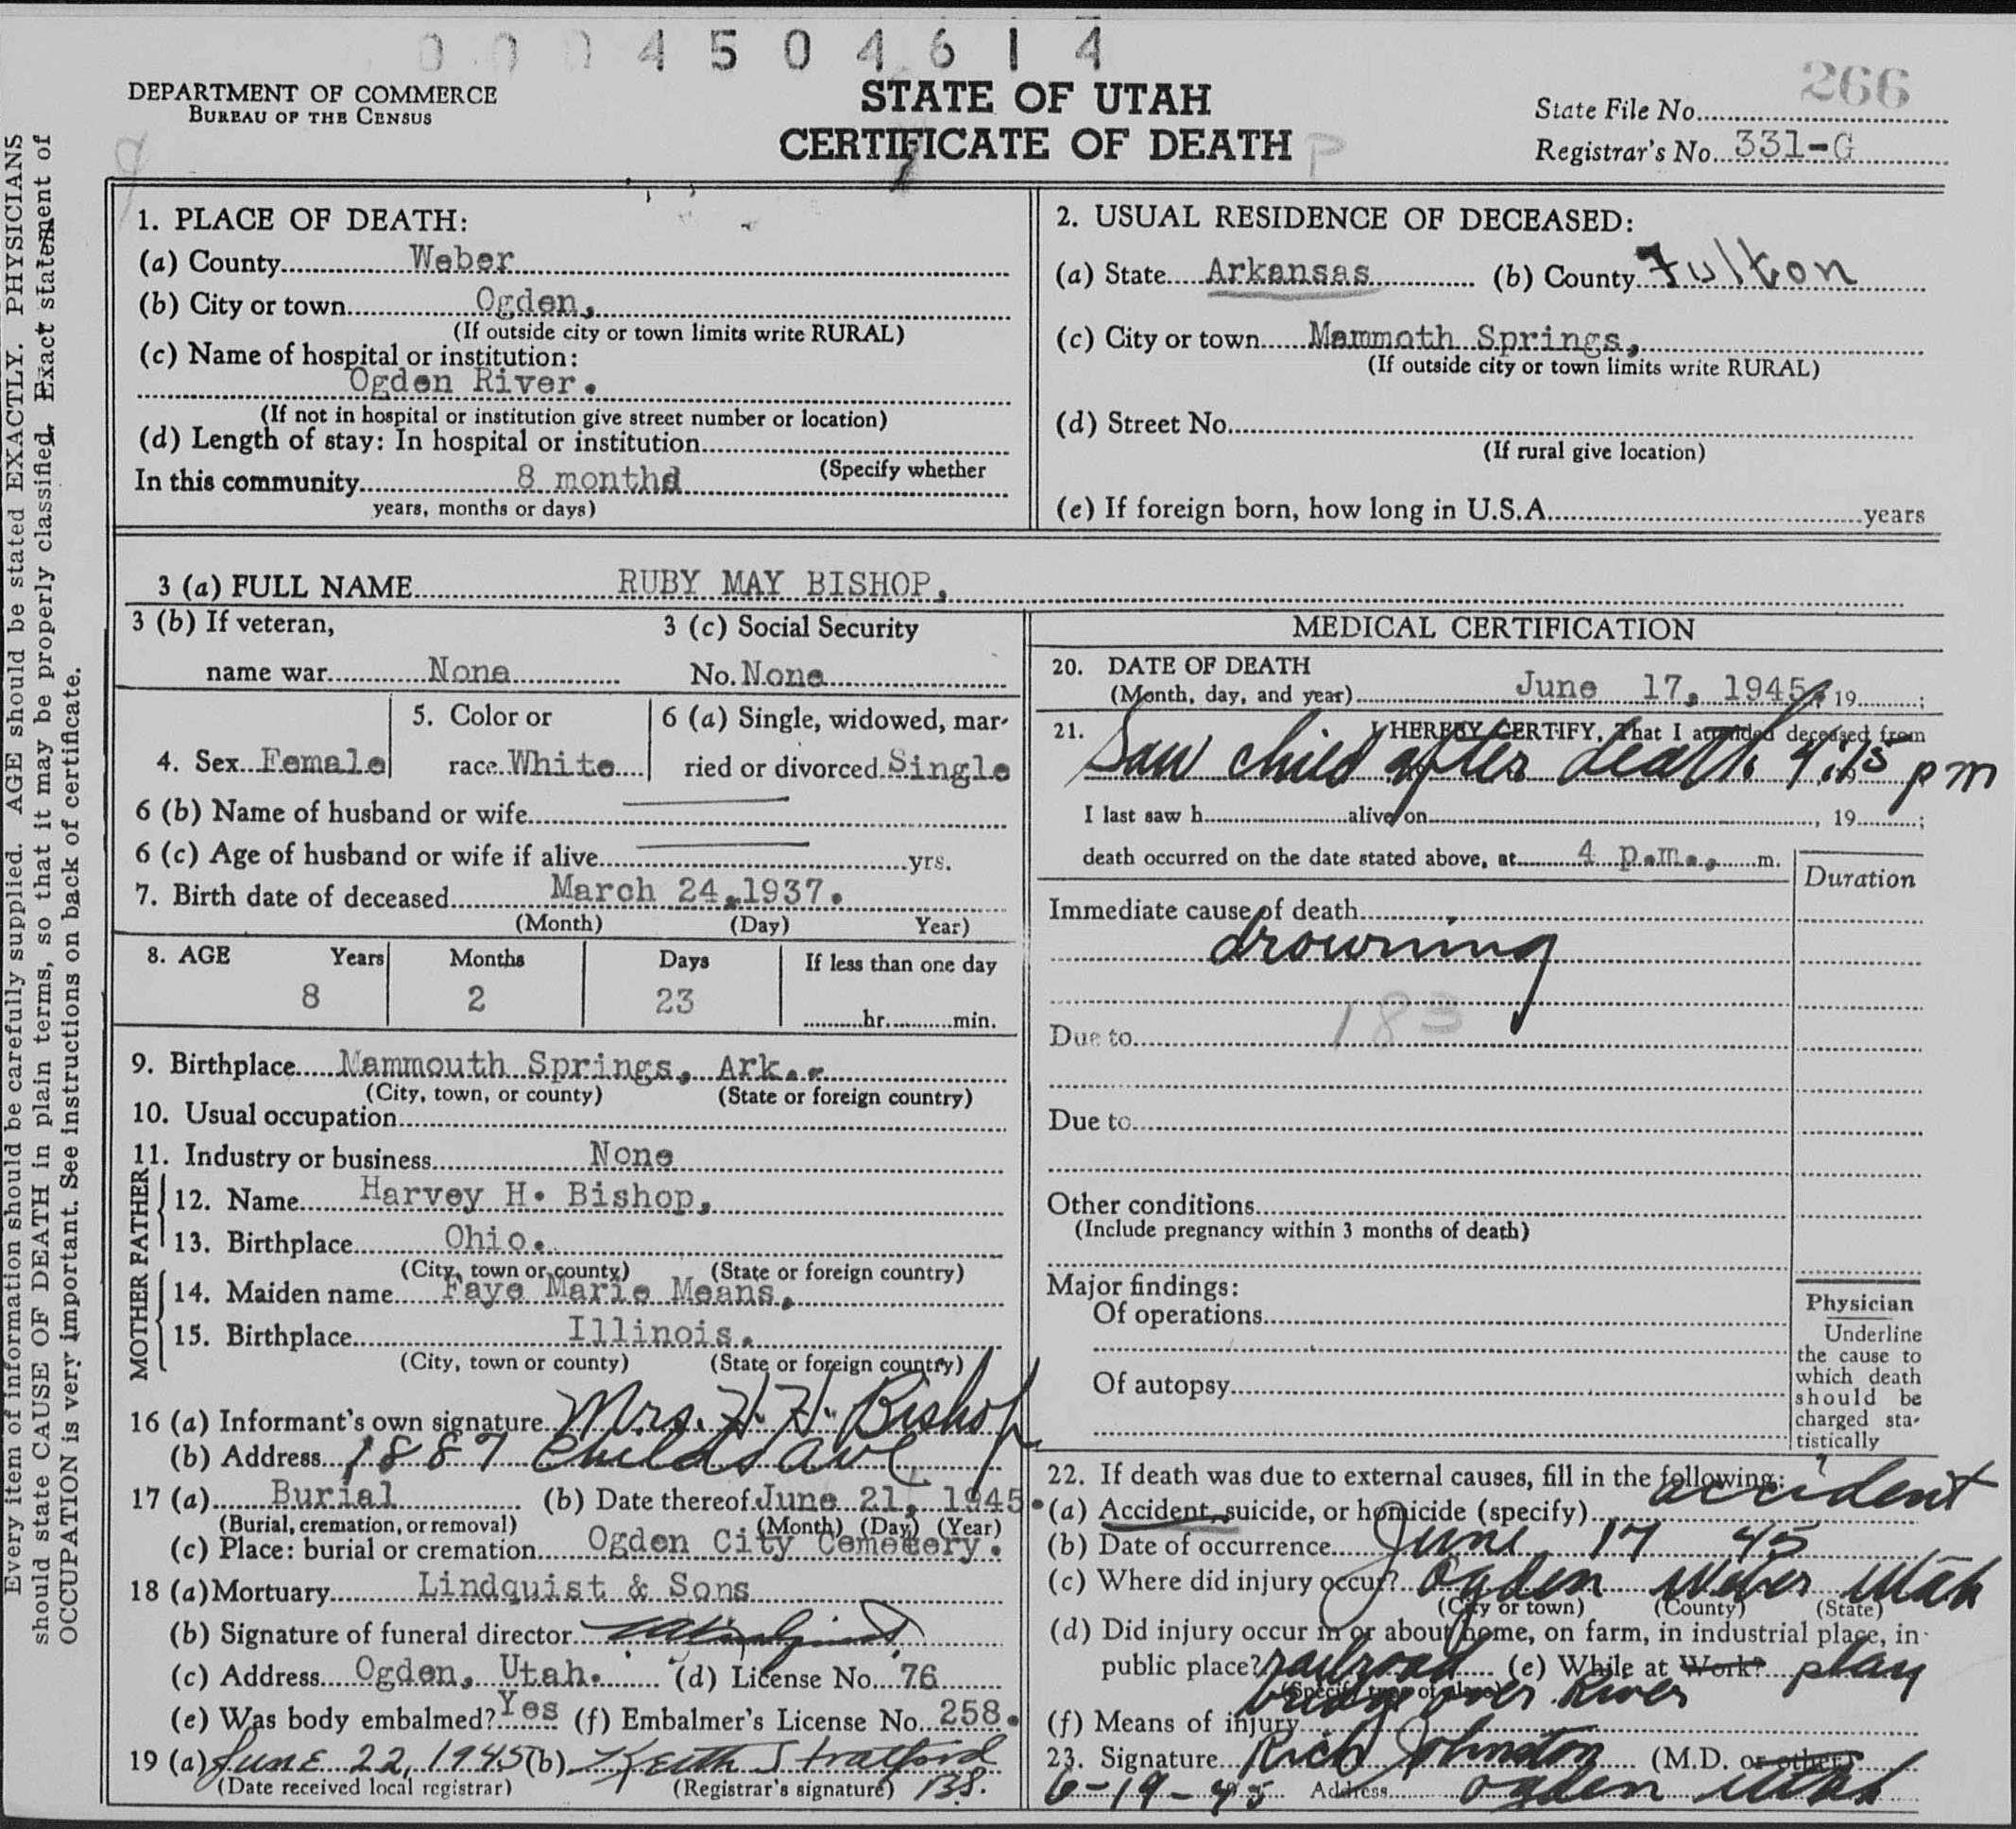 0 0 0 4 5 0 4 6 1 4
266
DEPARTMENT OF COMMERCE
BUREAU OF THE CENSUS
STATE OF UTAH
CERTIFICATE OF DEATH P
State File No.
Registrar's No. 331-G
Every item of information should be carefully supplied. AGE should be stated EXACTLY. PHYSICIANS
should state CAUSE OF DEATH in plain terms, so that it may be properly classified. Exact statement of
OCCUPATION is very important. See instructions on back of certificate.
1. PLACE OF DEATH:
(a) County Weber
(b) City or town Ogden,
(If outside city or town limits write RURAL)
(c) Name of hospital or institution:
Ogden River.
(If not in hospital or institution give street number or location)
(d) Length of stay: In hospital or institution
(Specify whether
In this community 8 months
years, months or days)
2. USUAL RESIDENCE OF DECEASED:
(a) State Arkansas (b) County Fulton
(c) City or town Mammoth Springs,
(If outside city or town limits write RURAL)
(d) Street No.
(If rural give location)
(e) If foreign born, how long in U.S.A. years
3 (a) FULL NAME RUBY MAY BISHOP,
3 (b) If veteran, 3 (c) Social Security
name war None No. None
4. Sex Female
5. Color or
race White
6 (a) Single, widowed, mar-
ried or divorced Single
6 (b) Name of husband or wife
6 (c) Age of husband or wife if alive yrs.
7. Birth date of deceased March 24, 1937.
(Month) (Day) Year)
8. AGE Years Months Days If less than one day
8 2 23 hr. min.
9. Birthplace Mammouth Springs, Ark.
(City, town, or county) (State or foreign country)
10. Usual occupation
11. Industry or business None
FATHER
12. Name Harvey H. Bishop,
13. Birthplace Ohio.
(City, town or county) (State or foreign country)
MOTHER
14. Maiden name Faye Marie Means,
15. Birthplace Illinois.
(City, town or county) (State or foreign country)
16 (a) Informant's own signature Mrs. H. H. Bishop
(b) Address 1887 Childs Ave
17 (a) Burial (b) Date thereof June 21, 1945.
(Burial, cremation, or removal) (Month) (Day) (Year)
(c) Place: burial or cremation Ogden City Cemetery.
18 (a) Mortuary Lindquist & Sons
(b) Signature of funeral director
(c) Address Ogden, Utah. (d) License No. 76
(e) Was body embalmed? Yes (f) Embalmer's License No. 258.
19 (a) June 22, 1945 (b) Keith Stratford
(Date received local registrar) (Registrar's signature) B.S.
MEDICAL CERTIFICATION
20. DATE OF DEATH
(Month, day, and year) June 17, 1945, 19 ;
21. I HEREBY CERTIFY, That I attended deceased from
Saw child after death 4:15 pm
I last saw h alive on , 19 ;
death occurred on the date stated above, at 4 p.m., m.
Duration
Immediate cause of death
drowning
183
Due to
Due to
Other conditions
(Include pregnancy within 3 months of death)
Major findings:
Of operations
Of autopsy
Physician
Underline
the cause to
which death
should be
charged sta-
tistically
22. If death was due to external causes, fill in the following:
(a) Accident, suicide, or homicide (specify) accident
(b) Date of occurrence June 17 45
(c) Where did injury occur? Ogden Weber Utah
(City or town) (County) (State)
(d) Did injury occur in or about home, on farm, in industrial place, in
public place? railroad (e) While at Work? play
(Specify type of place)
bridge over River
(f) Means of injury
23. Signature Rich Johnston (M.D. or other)
6-19-45 Address Ogden Utah